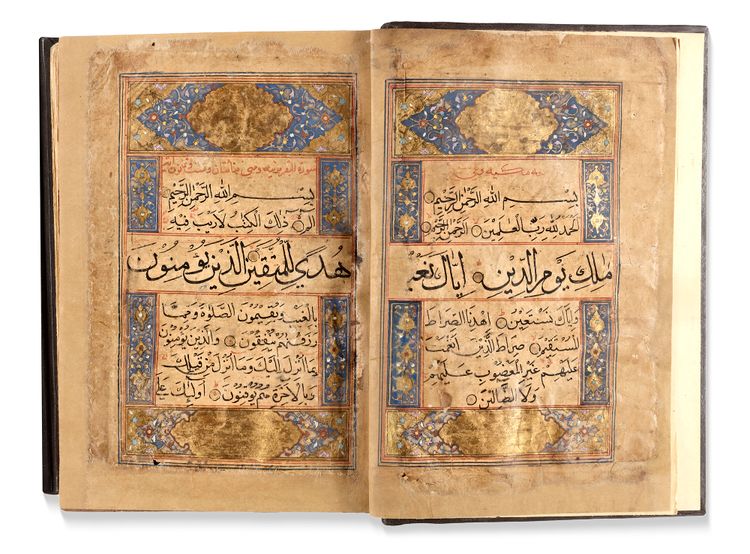 بسم الله الرحمن الرحيم
الحمد لله رب العلمين الرحمن الرحيم
ملك يوم الدين اياك نعبد
واياك نستعين اهدنا الصراط
المستقيم صراط الذين انعمت
عليهم غير المغضوب عليهم
ولا الضالين
سورة البقرة مدنية وهي مائتان وست وثمانون
بسم الله الرحمن الرحيم
الم ذلك الكتب لا ريب فيه
هدي للمتقين الذين يؤمنون
بالغيب ويقيمون الصلوة ومما
رزقنهم ينفقون والذين يؤمنون
بما انزل اليك وما انزل من قبلك
وبالاخرة هم يوقنون اوليك علي